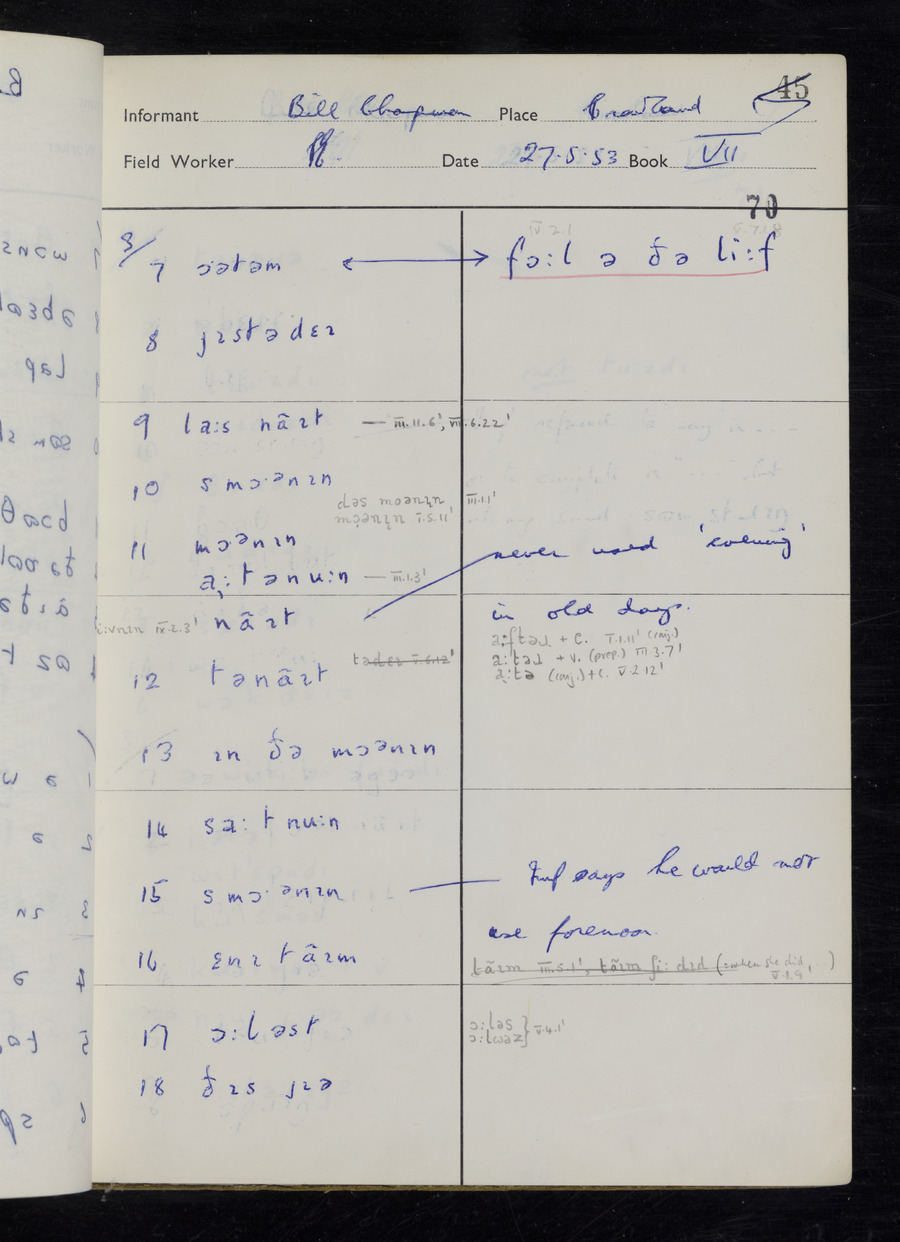 45
Informant Bill Chapman Place
Field Worker Date 27.5.53 Book VII
70
3/
7 ɔətəm ↔ fɔ:l ə ðə li:f
IV.2.1
8 jɪstədɛɪ
9 la:s nãɪt — III.11.6', VII.6.22'
10 smɔ·ənɪn
ðəs mɔənɪn III.1.1'
mɔənɪn I.5.11'
11 mɔənɪn
a:tənu:n — III.1.3'
never used 'evening'
i:vnɪn IV.2.3' nãɪt
in old days.
a:ftəɹ + c. I.1.11' (conj.)
a:təɹ + v. (prep.) III.3.7'
a:tə (conj.) + c. V.2.12'
tədɛɪ V.6.12'
12 tənãɪt
13 ɪn ðə mɔənɪn
14 sa:tnu:n
15 smɔ·ənɪn — Inf says he would not
use forenoon.
16 ɛnɪtãɪm
tãɪm III.5.1', tãɪm ʃi: dɪd (:when she did, ..)
V.1.9
17 ɔ:ləst
ɔ:ləs
ɔ:lwəz } V.4.1'
18 ðɪs jɪə